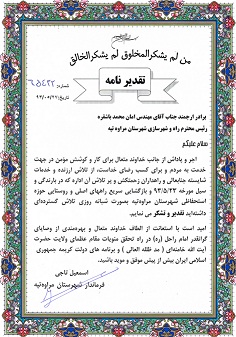 من لم یشکرالمخلوق لم یشکرالخالق
تقدیر نامه
شماره:
تاریخ:
برادر ارجمند جناب آقای مهندس امان محمد باشقره
رئیس محترم راه و شهرسازی شهرستان مراوه تپه
سلام علیکم
اجر و پاداش از جانب خداوند متعال برای کار و کوشش مؤمن در جهت
خدمت به مردم و برای کسب رضای خداست، از تلاش ارزنده و خدمات
شایسته جنابعالی و راهداران زحمتکش و پر تلاش آن اداره که در بارندگی و
سیل مورخه ۹۳/۵/۲۳ و بازگشایی سریع راههای اصلی و روستایی حوزه
استحفاظی شهرستان مراوه‌تپه بصورت شبانه روزی تلاش گسترده‌ای
داشته‌اید تقدیر و تشکر می نمایم.
امید است با استعانت از الطاف خداوند متعال و بهره‌مندی از وصایای
گرانقدر امام راحل (ره) در راه تحقق منویات مقام عظمای ولایت حضرت
آیت الله خامنه‌ای ( مد ظله العالی ) و برنامه های دولت کریمه جمهوری
اسلامی ایران بیش از پیش موفق و موید باشید.
اسمعیل تاجی
فرماندار شهرستان مراوه‌تپه